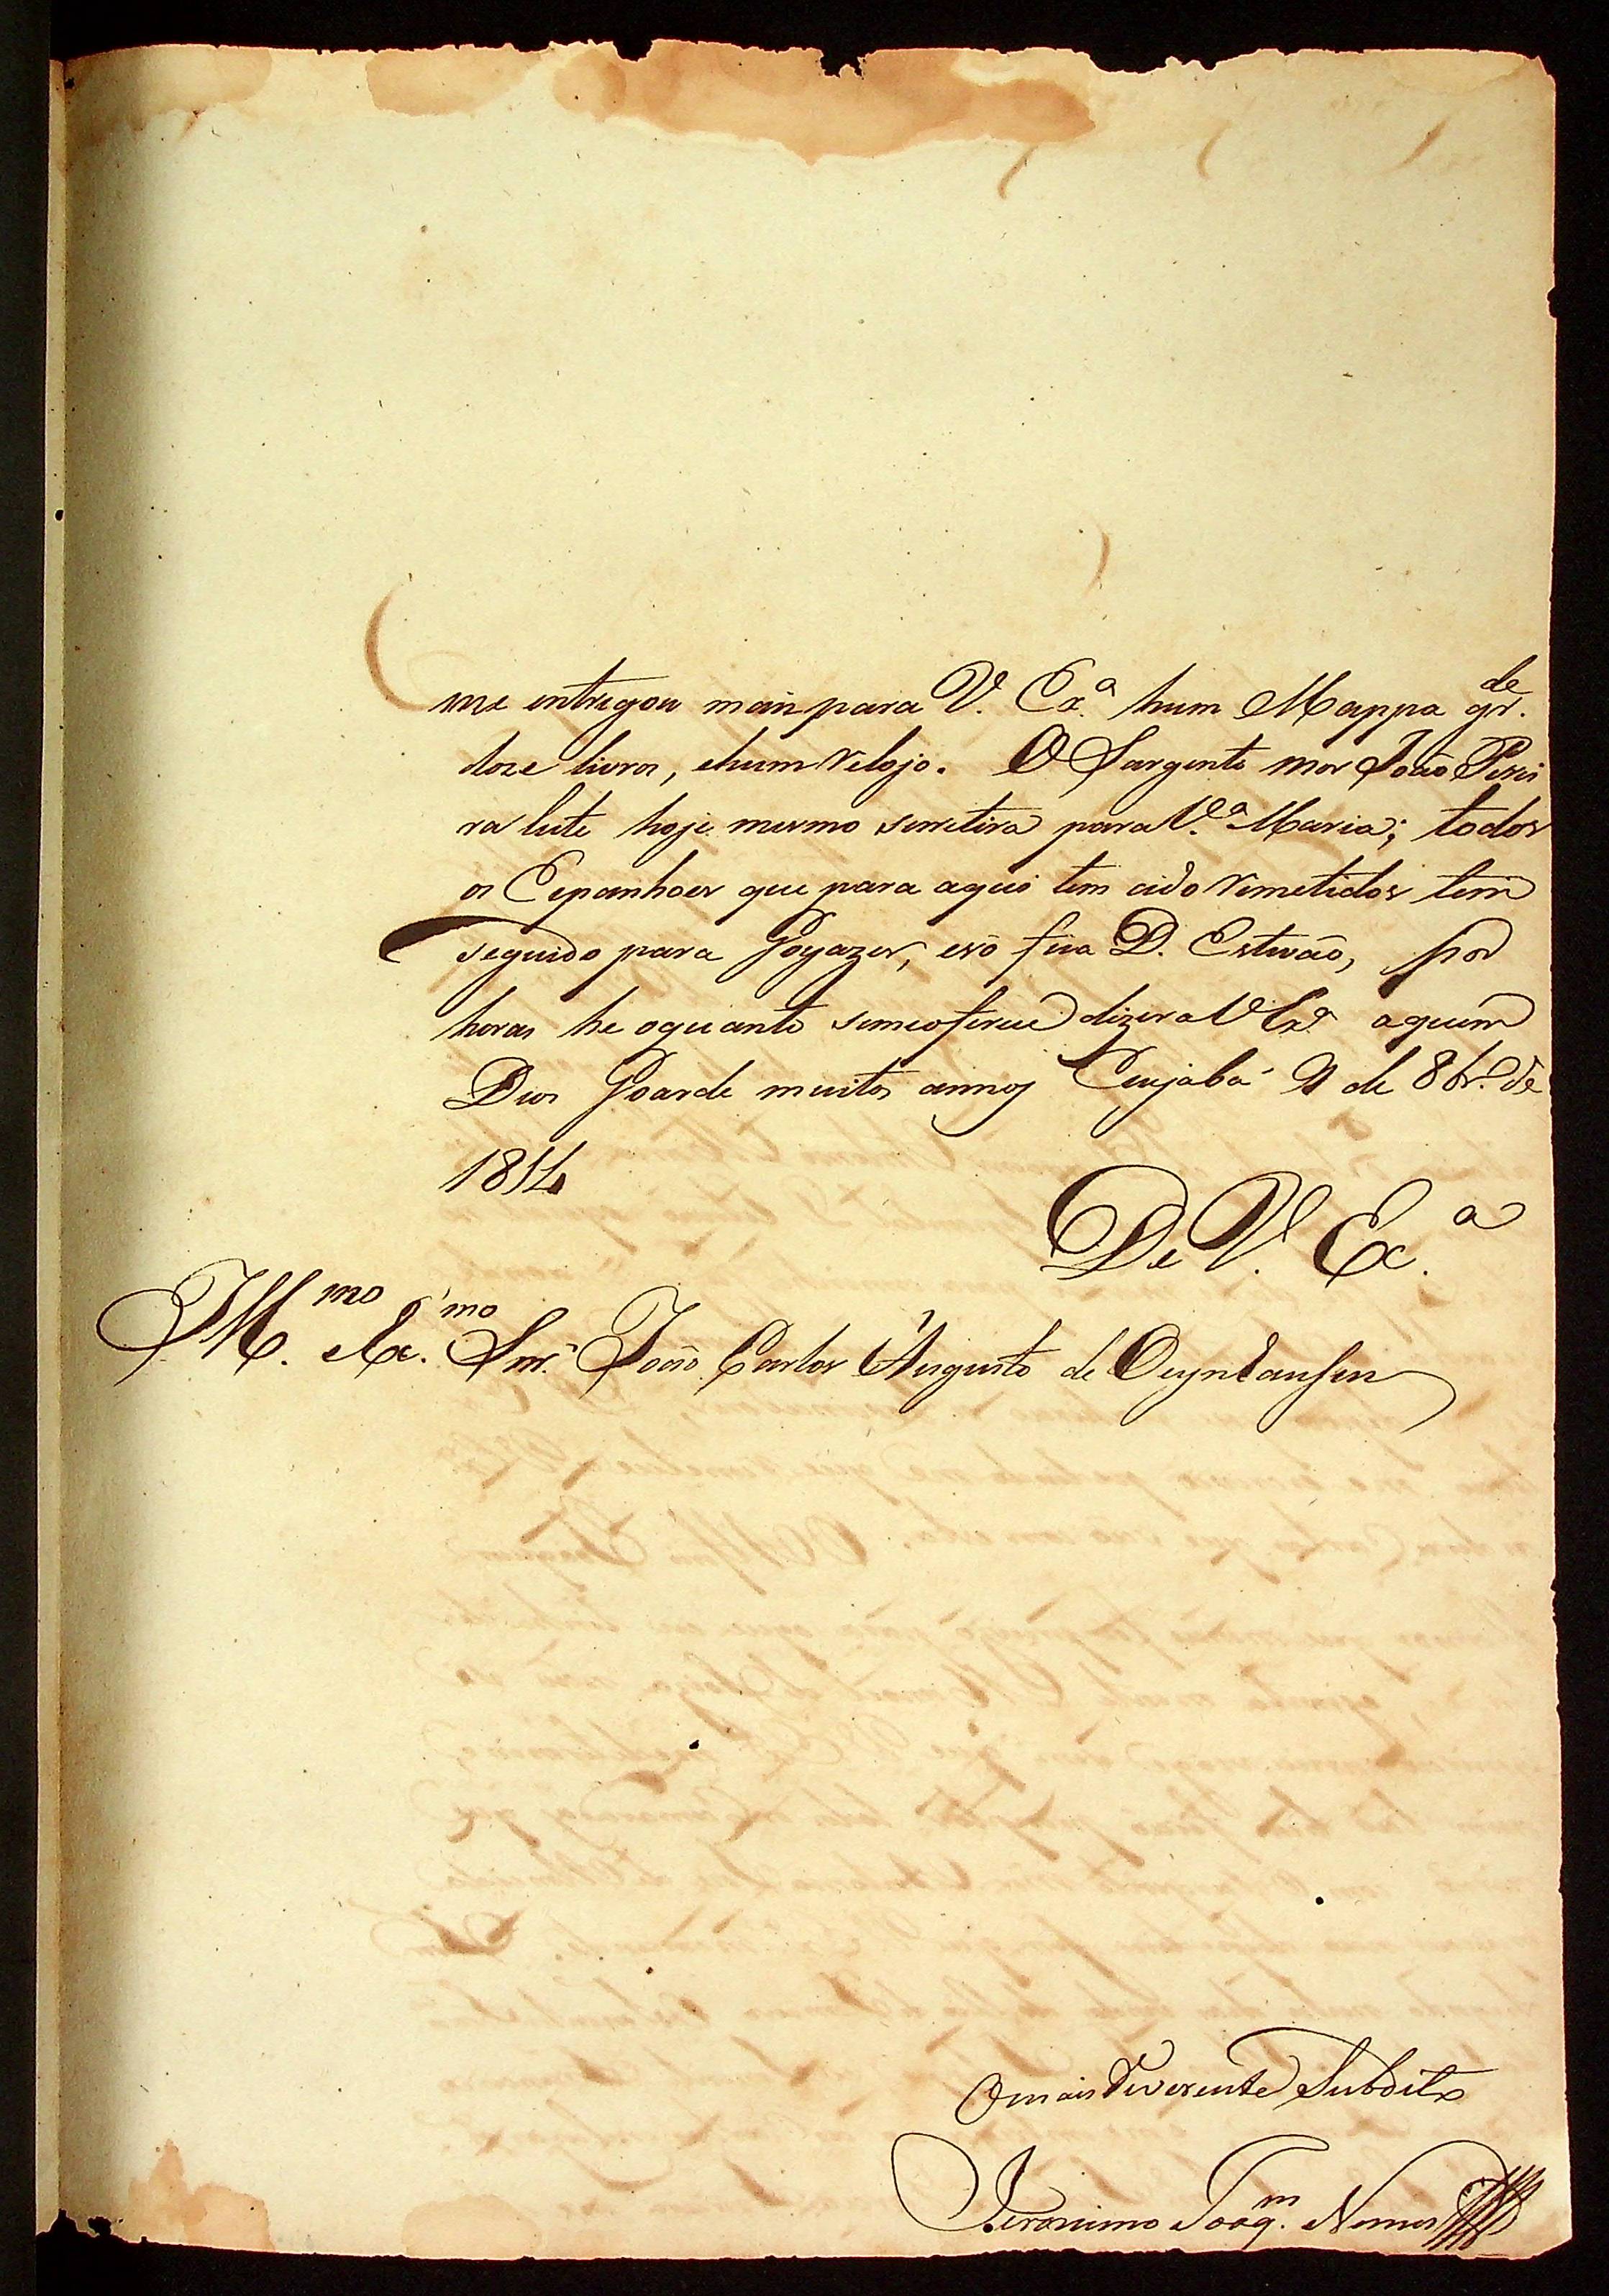 me entregou mais para V. Ex.ª hum Mappa gr.de
doze livros, ehum relojo. O Sargento mor João Perei
ra leite hoje mesmo serretira para V.ª Maria; todos
os Cepanhoes que para aqui tem cido remetidos tem
seguido para Goyazes, esó fica D. Estevão, por
horas he oquanto semeoferece dizer a V Ex.ª aquem
Deos Goarde muitos annos Cuyabá 9 de 8br.º de
1814
De V. Ex.ª
Ill.mo e Ex.mo Snr. João Carlos Augusto de Oeynhausen
O mais Reverente Subdito
Jeronimo Joaq.m Nunes